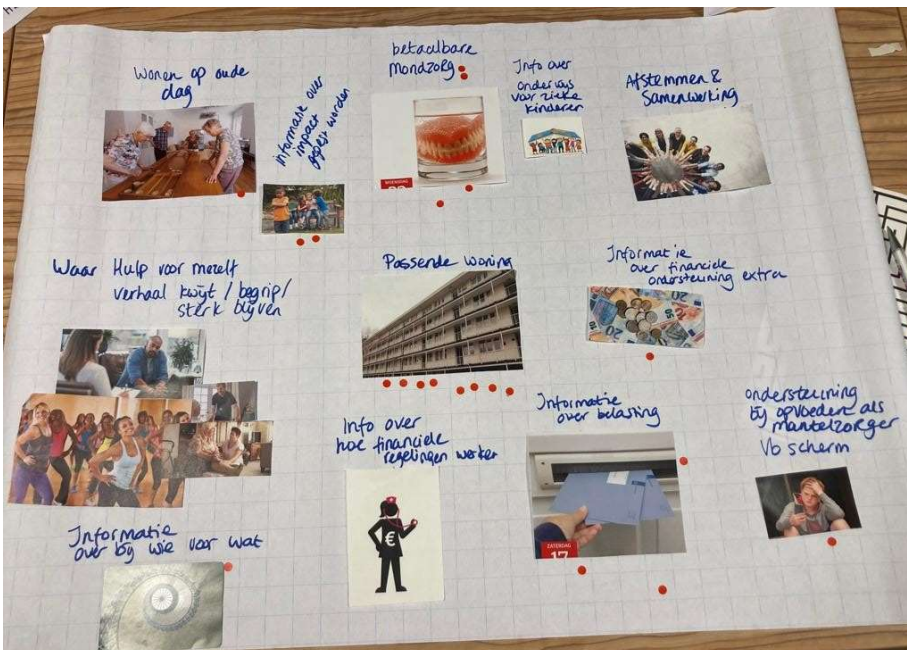 Wonen op oude
dag
informatie over
impact
gepest worden
betaalbare
mondzorg
Info over
onderwijs
voor zieke
kinderen
Afstemmen &
Samenwerking
Waar Hulp voor mezelf
verhaal kwijt / begrip /
sterk blijven
Passende woning
Informatie
over financiele
ondersteuning extra
Info over
hoe financiele
regelingen werken
Informatie
over belasting
ondersteuning
bij opvoeden als
mantelzorger
Vb scherm
Informatie
over bij wie voor wat
WOENSDAG
€
ZATERDAG
17
20